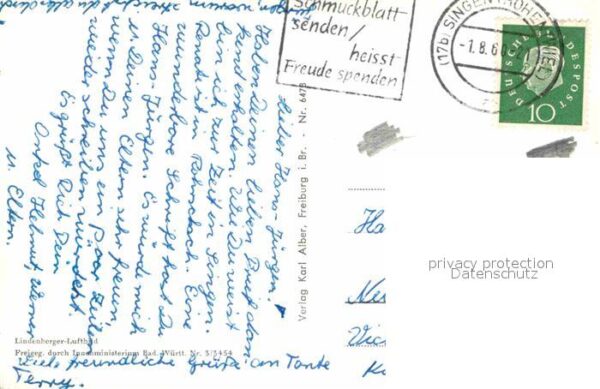 Schmuckblatt-
senden /
heisst
Freude spenden
(17b) SINGEN (HOHENTWIEL)
-1.8.60
DEUTSCHE BUNDESPOST
10
Lieber Hans-Jürgen!
Haben Deinen lieben Brief dan-
kend erhalten. Wie Du weist
bin ich zur Zeit in Singen.
Renate ist in Rohrschach. Eine
wunderbare Schrift hast Du
Hans-Jürgen. Es würde mich
u. Dein Eltern sehr freuen,
wenn Du uns ein Paar Zeilen
wieder schreiben würdest.
Es grüßt Dich Dein
Onkel Helmut, Werner
u. Eltern.
Viele freundliche Grüße an Tante
Terry.
Verlag Karl Alber, Freiburg i. Br. - Nr. 6478
Lindenberger-Luftbild
Freigeg. durch Innenministerium Bad. Württ. Nr. 5/5454
Ha
Ne
Vic
K
privacy protection
Datenschutz